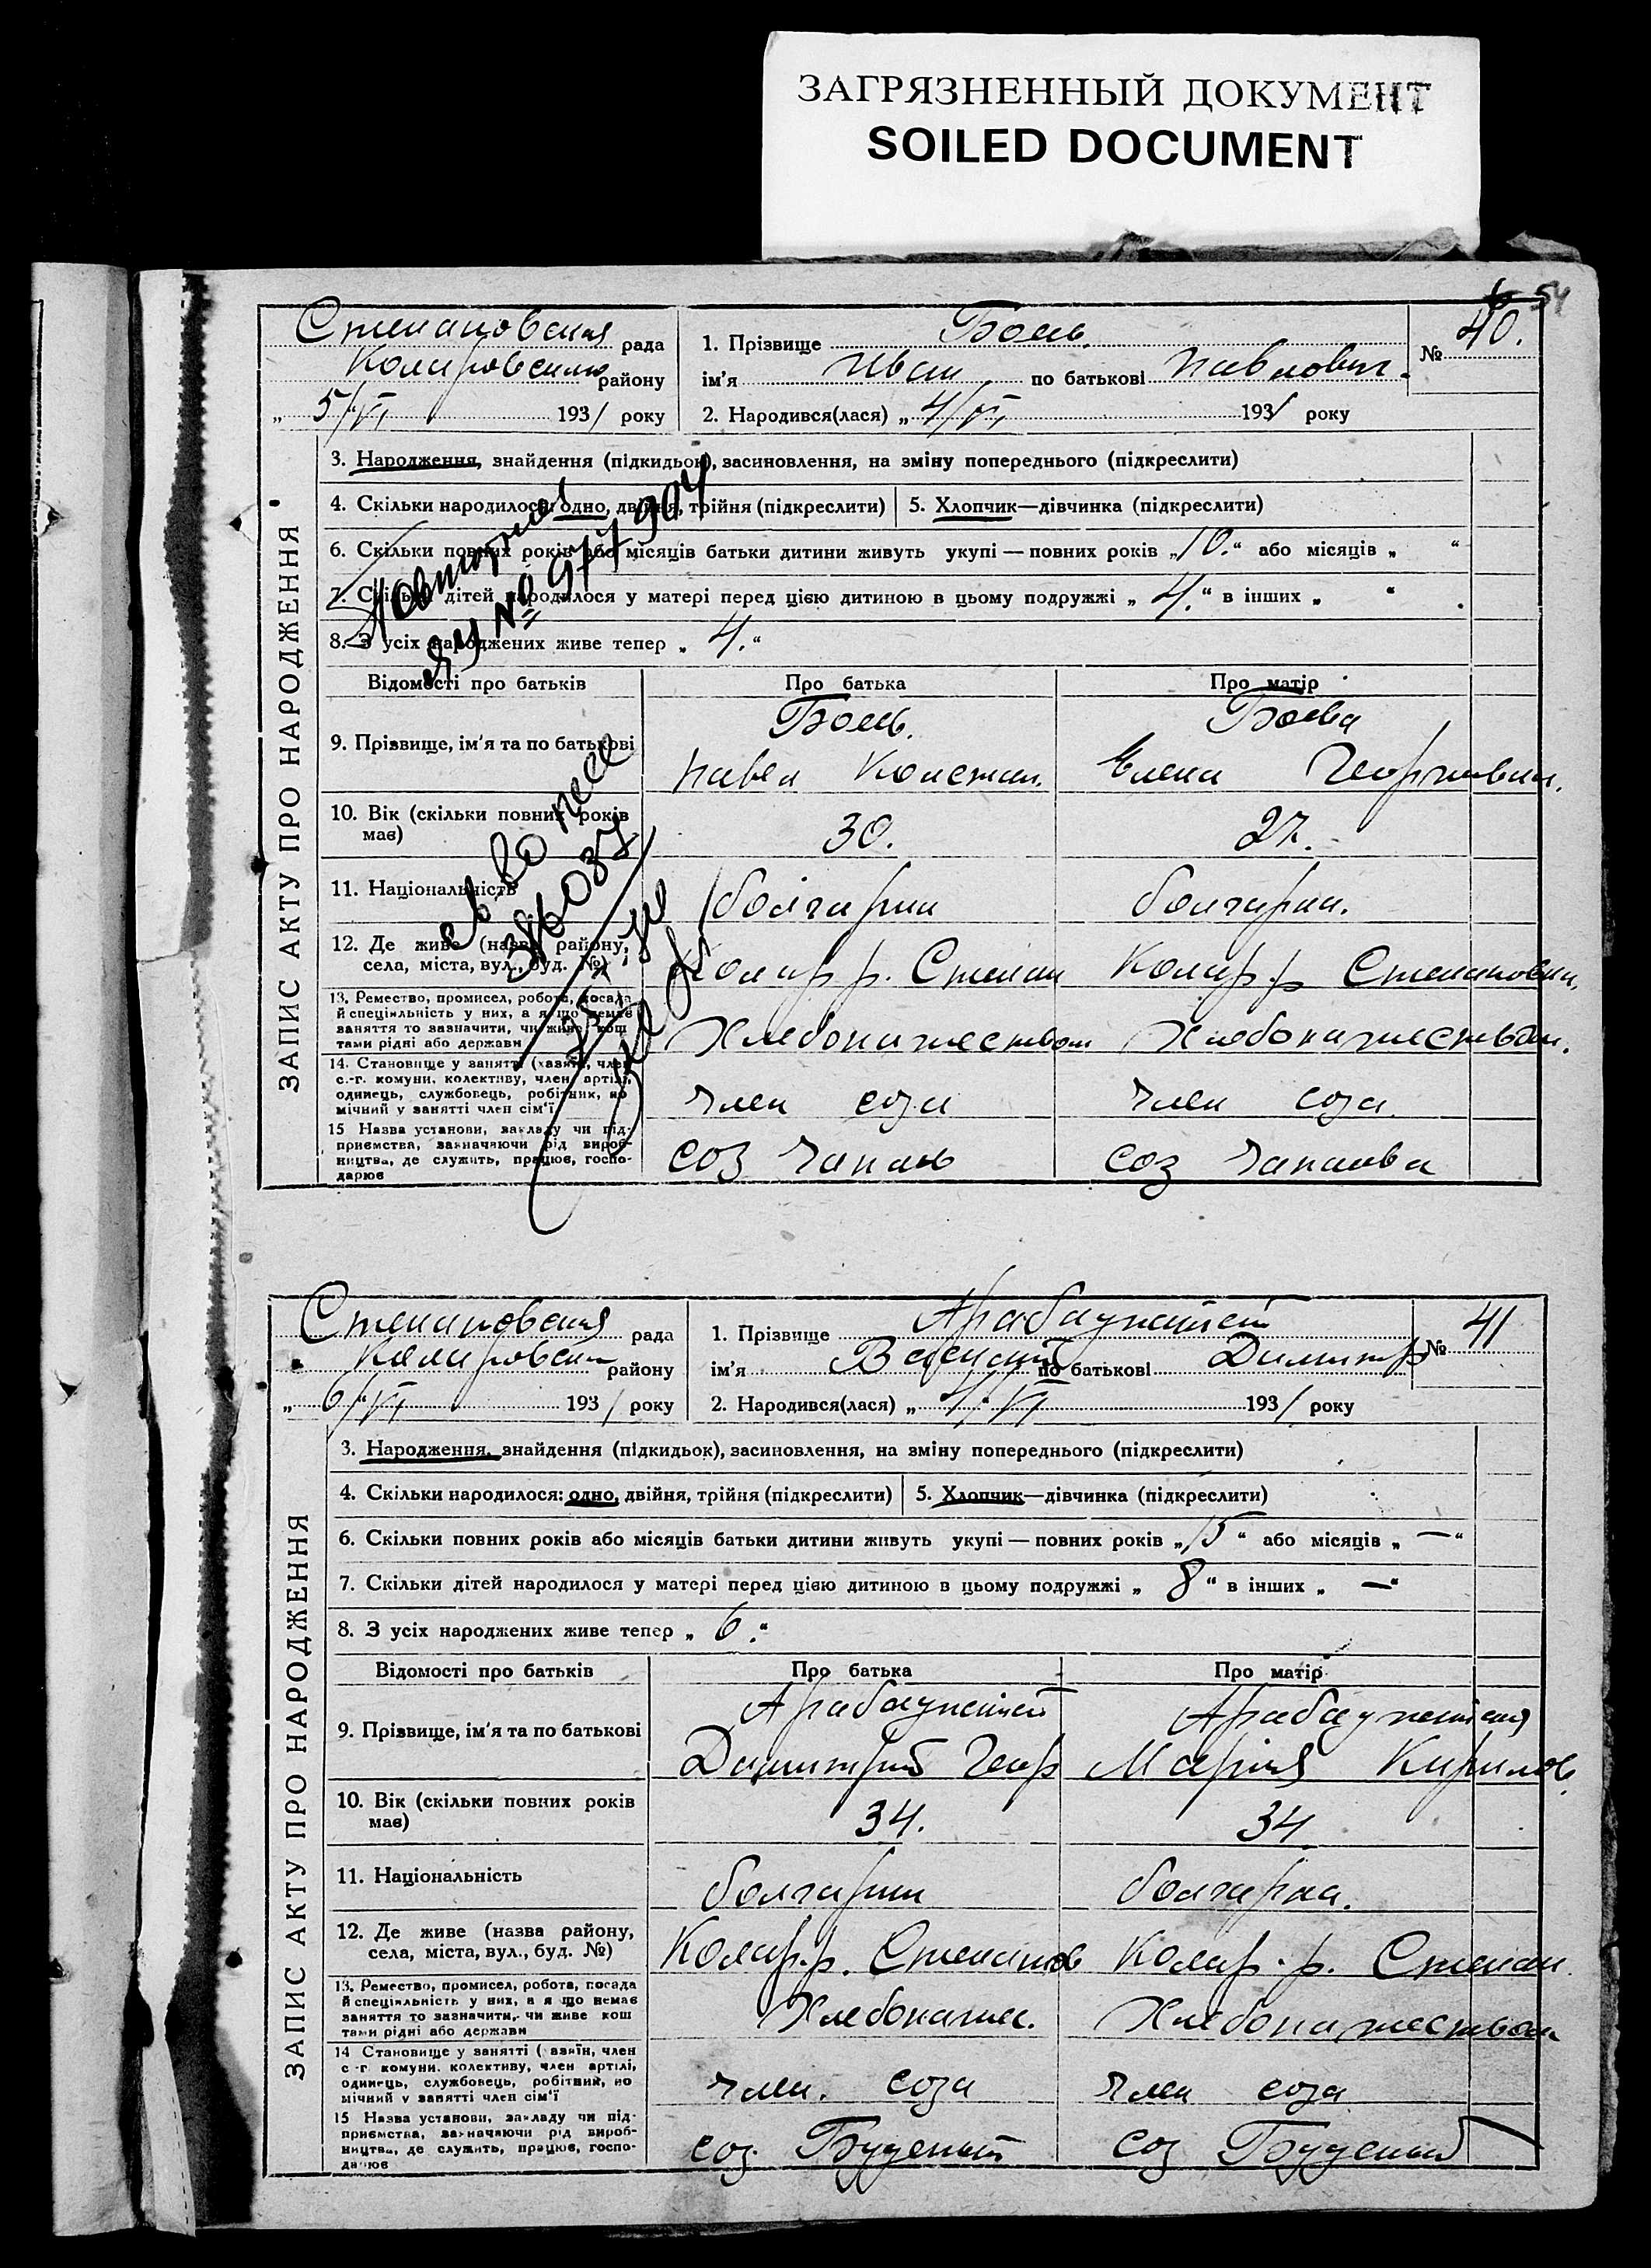 ЗАГРЯЗНЕННЫЙ ДОКУМЕНТ
SOILED DOCUMENT
54
Степановская рада
Коларовського району
„ 5/VI 1931 року
1. Прізвище Боев.
ім'я Иван по батькові Павлович.
№ 40.
2. Народився(лася) „ 4/VI 1931 року
ЗАПИС АКТУ ПРО НАРОДЖЕННЯ
3. Народження, знайдення (підкидьок), засиновлення, на зміну попереднього (підкреслити)
4. Скільки народилося: одно, двійня, трійня (підкреслити) 5. Хлопчик—дівчинка (підкреслити)
6. Скільки повних років або місяців батьки дитини живуть укупі — повних років „10.“ або місяців „ “
7. Скільки дітей народилося у матері перед цією дитиною в цьому подружжі „ 4.“ в інших „ “
8. З усіх народжених живе тепер „ 4.“
Повторное
ЯУ № 977904
386037
Відомості про батьків Про батька Про матір
9. Прізвище, ім'я та по батькові
Боев. Боева
Павел Констан. Елена Георгиевна.
10. Вік (скільки повних років має) 30. 27.
11. Національність болгарин болгарка.
12. Де живе (назва району, села, міста, вул., буд. №)
Колар р. Степан Колар р Степановка,
13. Ремество, промисел, робота, посада й спеціяльність у них, а якщо немає заняття то зазначити, чи живе коштами рідні або держави
Хлебопашеством Хлебопашеством.
14. Становище у занятті (хазяїн, член с.-г. комуни, колективу, член артілі, одинець, службовець, робітник, помічний у занятті член сім'ї
член соза член соза
15 Назва установи, закладу чи підприємства, зазначаючи рід виробництва, де служить, працює, господарює
соз Чапаев соз Чапаева
Степановская рада
Коларовськ району
„ 6/VI 1931 року
1. Прізвище Арабаджийский
ім'я Василий по батькові Димитр
№ 41
2. Народився(лася) „ 4/VI 1931 року
ЗАПИС АКТУ ПРО НАРОДЖЕННЯ
3. Народження, знайдення (підкидьок), засиновлення, на зміну попереднього (підкреслити)
4. Скільки народилося: одно, двійня, трійня (підкреслити) 5. Хлопчик—дівчинка (підкреслити)
6. Скільки повних років або місяців батьки дитини живуть укупі — повних років „15“ або місяців „ —“
7. Скільки дітей народилося у матері перед цією дитиною в цьому подружжі „ 8 “ в інших „ —“
8. З усіх народжених живе тепер „ 6.“
Відомості про батьків Про батька Про матір
9. Прізвище, ім'я та по батькові
Арабаджийский Арабаджийская
Димитрий Геор Мария Кирилов.
10. Вік (скільки повних років має) 34. 34
11. Національність болгарин болгарка.
12. Де живе (назва району, села, міста, вул., буд. №)
Колар. р. Степанов Колар. р. Степан
13. Ремество, промисел, робота, посада й спеціяльність у них, а якщо немає заняття то зазначити, чи живе коштами рідні або держави
Хлебопашес. Хлебопашеством
14 Становище у занятті (хазяїн, член с.-г. комуни, колективу, член артілі, одинець, службовець, робітник, помічний у занятті член сім'ї
член. соза член соза
15 Назва установи, закладу чи підприємства, зазначаючи рід виробництва, де служить, працює, господарює
соз. Буденый соз Буденый